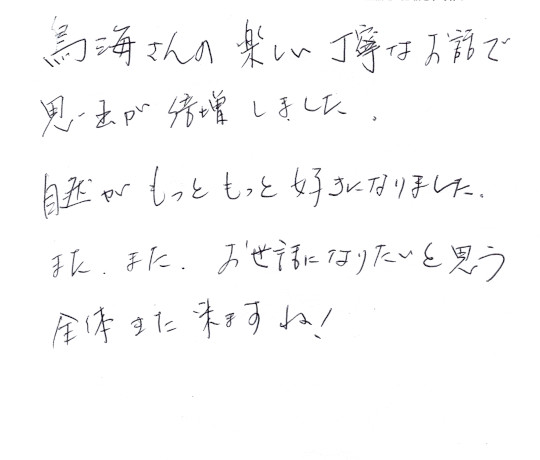 鳥海さんの楽しい丁寧なお話で
思い出が倍増しました。
自然がもっともっと好きになりました。
また、また、お世話になりたいと思う
全体また来ますね!